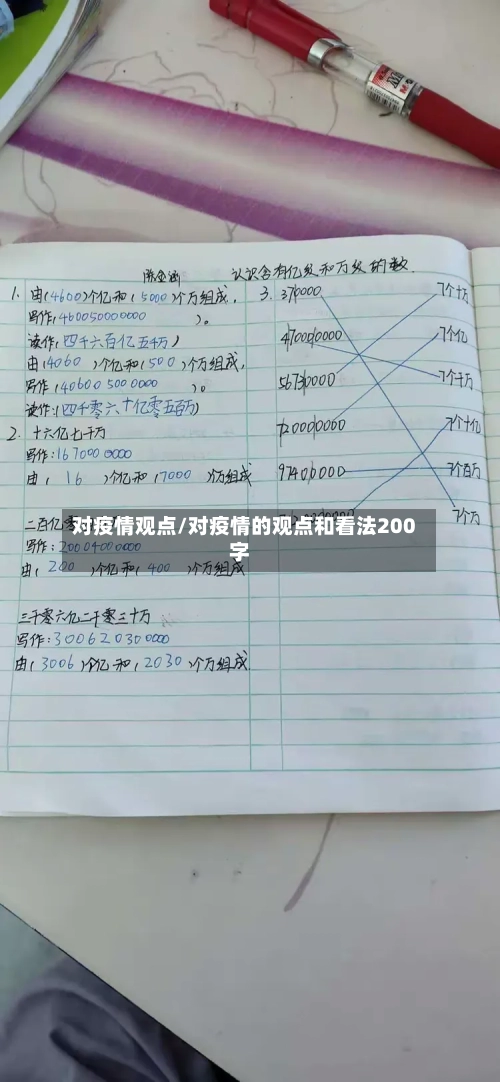 认识含有亿级和万级的数
1. 由(4600)个亿和(5000)个万组成,
写作(460050000000)。
读作(四千六百亿五千万)
由(4060)个亿和(500)个万组成,
写作(406005000000)。
读作:(四千零六十亿零五百万)
2. 十六亿七千万
写作:1670000000
由(16)个亿和(7000)个万组成
二百亿
写作:20004000000
由(200)个亿和(400)个万组成
三千零六亿二千零三十万
写作:300620300000
由(3006)个亿和(2030)个万组成
3. 370000
470000000
56730000
720000000
97400000
7个十万
7个亿
7个千万
7个十亿
7个百万
7个万
对疫情观点/对疫情的观点和看法200
字